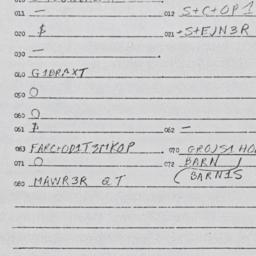 011 — 012 S+C+OP1
020 $ 021 +S+E/N3R
030 —
040 G1BRAXT
050 O
060 O
061 $ 062 —
063 FARC+OD1T2MKOP 070 GRO/S1 HO
071 O 072 BARN /
080 MAWR3R QT (BARN1S